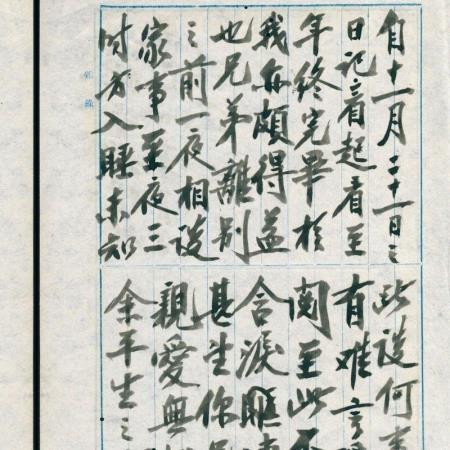 自十一月二十一日之
日记看起看至
年终完畢於
我亦頗得益
也兄弟離別
之前一夜相談
家事至夜三
时方入睡未知
此談何事
有难言
阅至此
含淚
甚生你
親愛無
余平生之